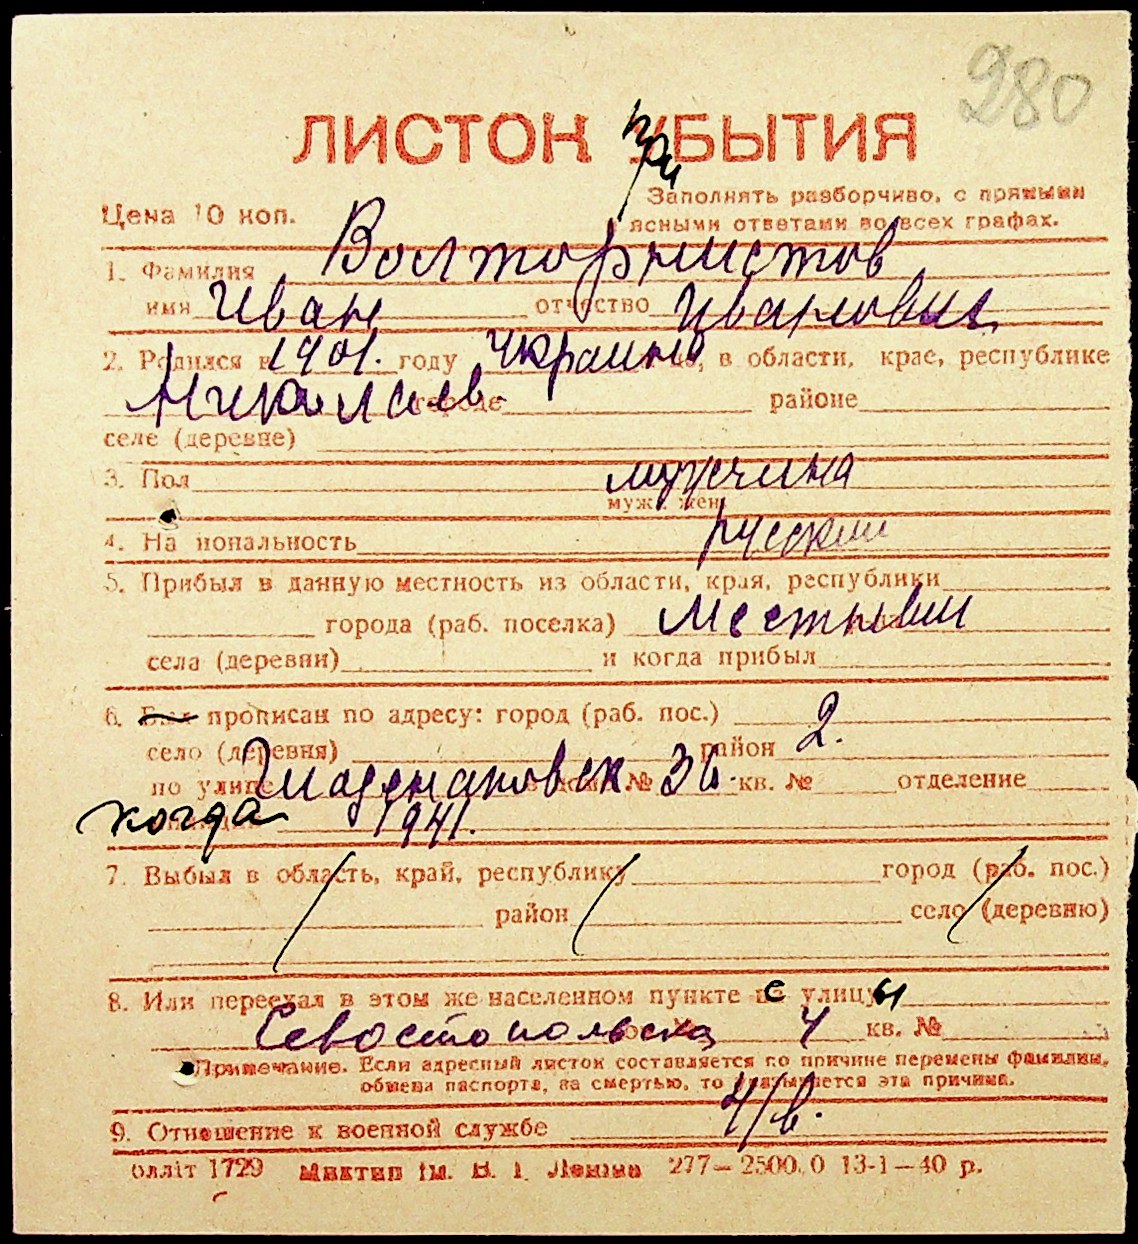 280
ЛИСТОК УБЫТИЯ
при
Цена 10 коп.
Заполнять разборчиво, с прямыми
ясными ответами во всех графах.
1. Фамилия Волторнистов
имя Иван отчество Иванович
2. Родился в 1901. году Украина, в области, крае, республике
Николаев. городе районе
селе (деревне)
3. Пол мужчина
муж. жен.
4. Национальность русский
5. Прибыл в данную местность из области, края, республики
города (раб. поселка) Местный
села (деревни) и когда прибыл
6. Был прописан по адресу: город (раб. пос.)
село (деревня) район 2.
по улице дом № 36. кв. № отделение
когда 1941.
7. Выбыл в область, край, республику город (раб. пос.)
район село (деревню)
8. Или переехал в этом же населенном пункте с улицы
Севостопольска 4 кв. №
Примечание. Если адресный листок составляется по причине перемены фамилии,
обмена паспорта, за смертью, то указывается эта причина.
9. Отношение к военной службе
облліт 1729 Миктип ім. В. І. Леніна 277—2500.0 13-1—40 р.